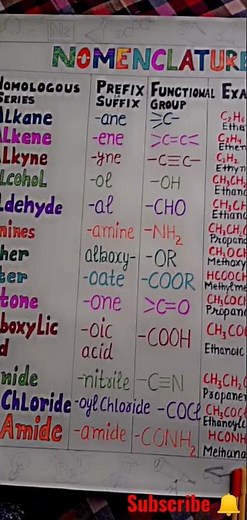 NOMENCLATURE
omologous Prefix Functional Exa
Series Suffix Group
lkane -ane >C- C₂H₆
Etha
lkene -ene >C=C< C₂H₄
Ethen
lkyne -yne -C≡C- C₂H₂
Ethyn
lcohol -ol -OH CH₃CH₂
Ethan
ldehyde -al -CHO CH₃CH
Ethan
mines -amine -NH₂ CH₃CH₂C
Propan
her alkoxy- -OR CH₃OCH
Methoxy
ter -oate -COOR HCOOCH
Methylme
tone -one >C=O CH₃COC
Propan
boxylic -oic -COOH CH₃CO
d acid Ethanoic
nide -nitrile -C≡N CH₃CH₂
Propaner
Chloride -oyl Chloride -COCl CH₃COC
Ethanoylc
Amide -amide -CONH₂ HCONH
Methana
Subscribe